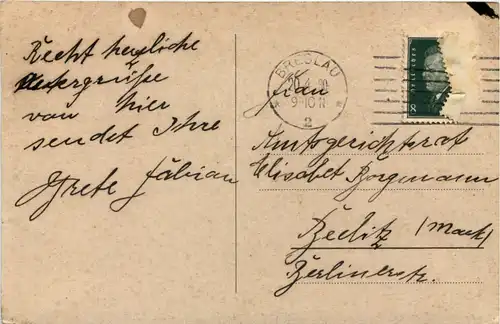 Recht herzliche
Ostergrüße
von hier
sendet Ihre
Grete Fabian
BRESLAU
9-10 N
2
8
Frau
Amtsgerichtsrat
Elisabet Borgmann
Beelitz (Mark)
Berlinerstr.